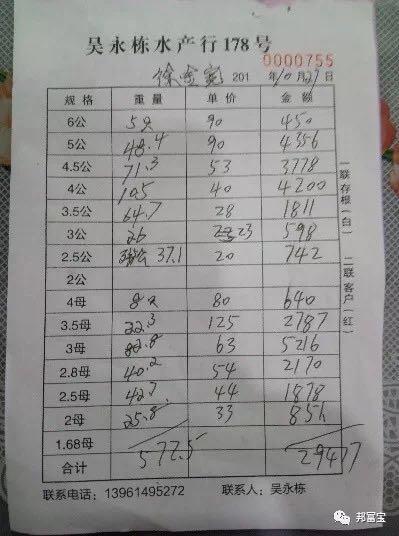 吴永栋水产行178号
0000755
徐 201 年10月27日
规格 重量 单价 金额
6公 5 90 450
5公 48.4 90 4356
4.5公 71.3 53 3778
4公 105 40 4200
3.5公 64.7 28 1811
3公 26 23 598
2.5公 37.1 20 742
2公
4母 8 80 640
3.5母 22.3 125 2787
3母 82.8 63 5216
2.8母 40.2 54 2170
2.5母 42.7 44 1878
2母 25.8 33 851
1.68母
合计 577.5 29477
一联存根(白)
二联客户(红)
联系电话:13961495272 联系人:吴永栋
邦富宝